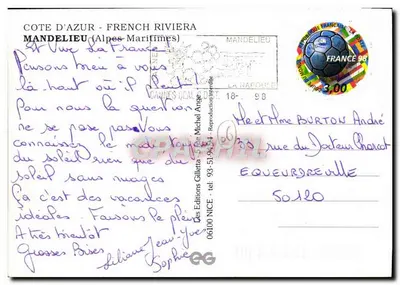 COTE D'AZUR - FRENCH RIVIERA
MANDELIEU (Alpes Maritimes)
Et Vive La France!
Pensons bien à vous
là haut où il pleut!
Pour nous la question
ne se pose pas. Vous
connaissez le mot
du soleil rien que du
soleil sans nuages
Ça c'est des vacances
idéales. Faisons le plein
A très bientôt
Grosses Bises
Liliane Jean-Yves
Sophie
MANDELIEU
LA NAPOULE
18-
98
FRANCE 98
3,00
Mr et Mme BURTON André
rue du Docteur
EQUEURDREVILLE
50120
Des Editions Gilletta
Michel Ange
06100 NICE - tel. 93-51-9
Reproduction interdite
EG